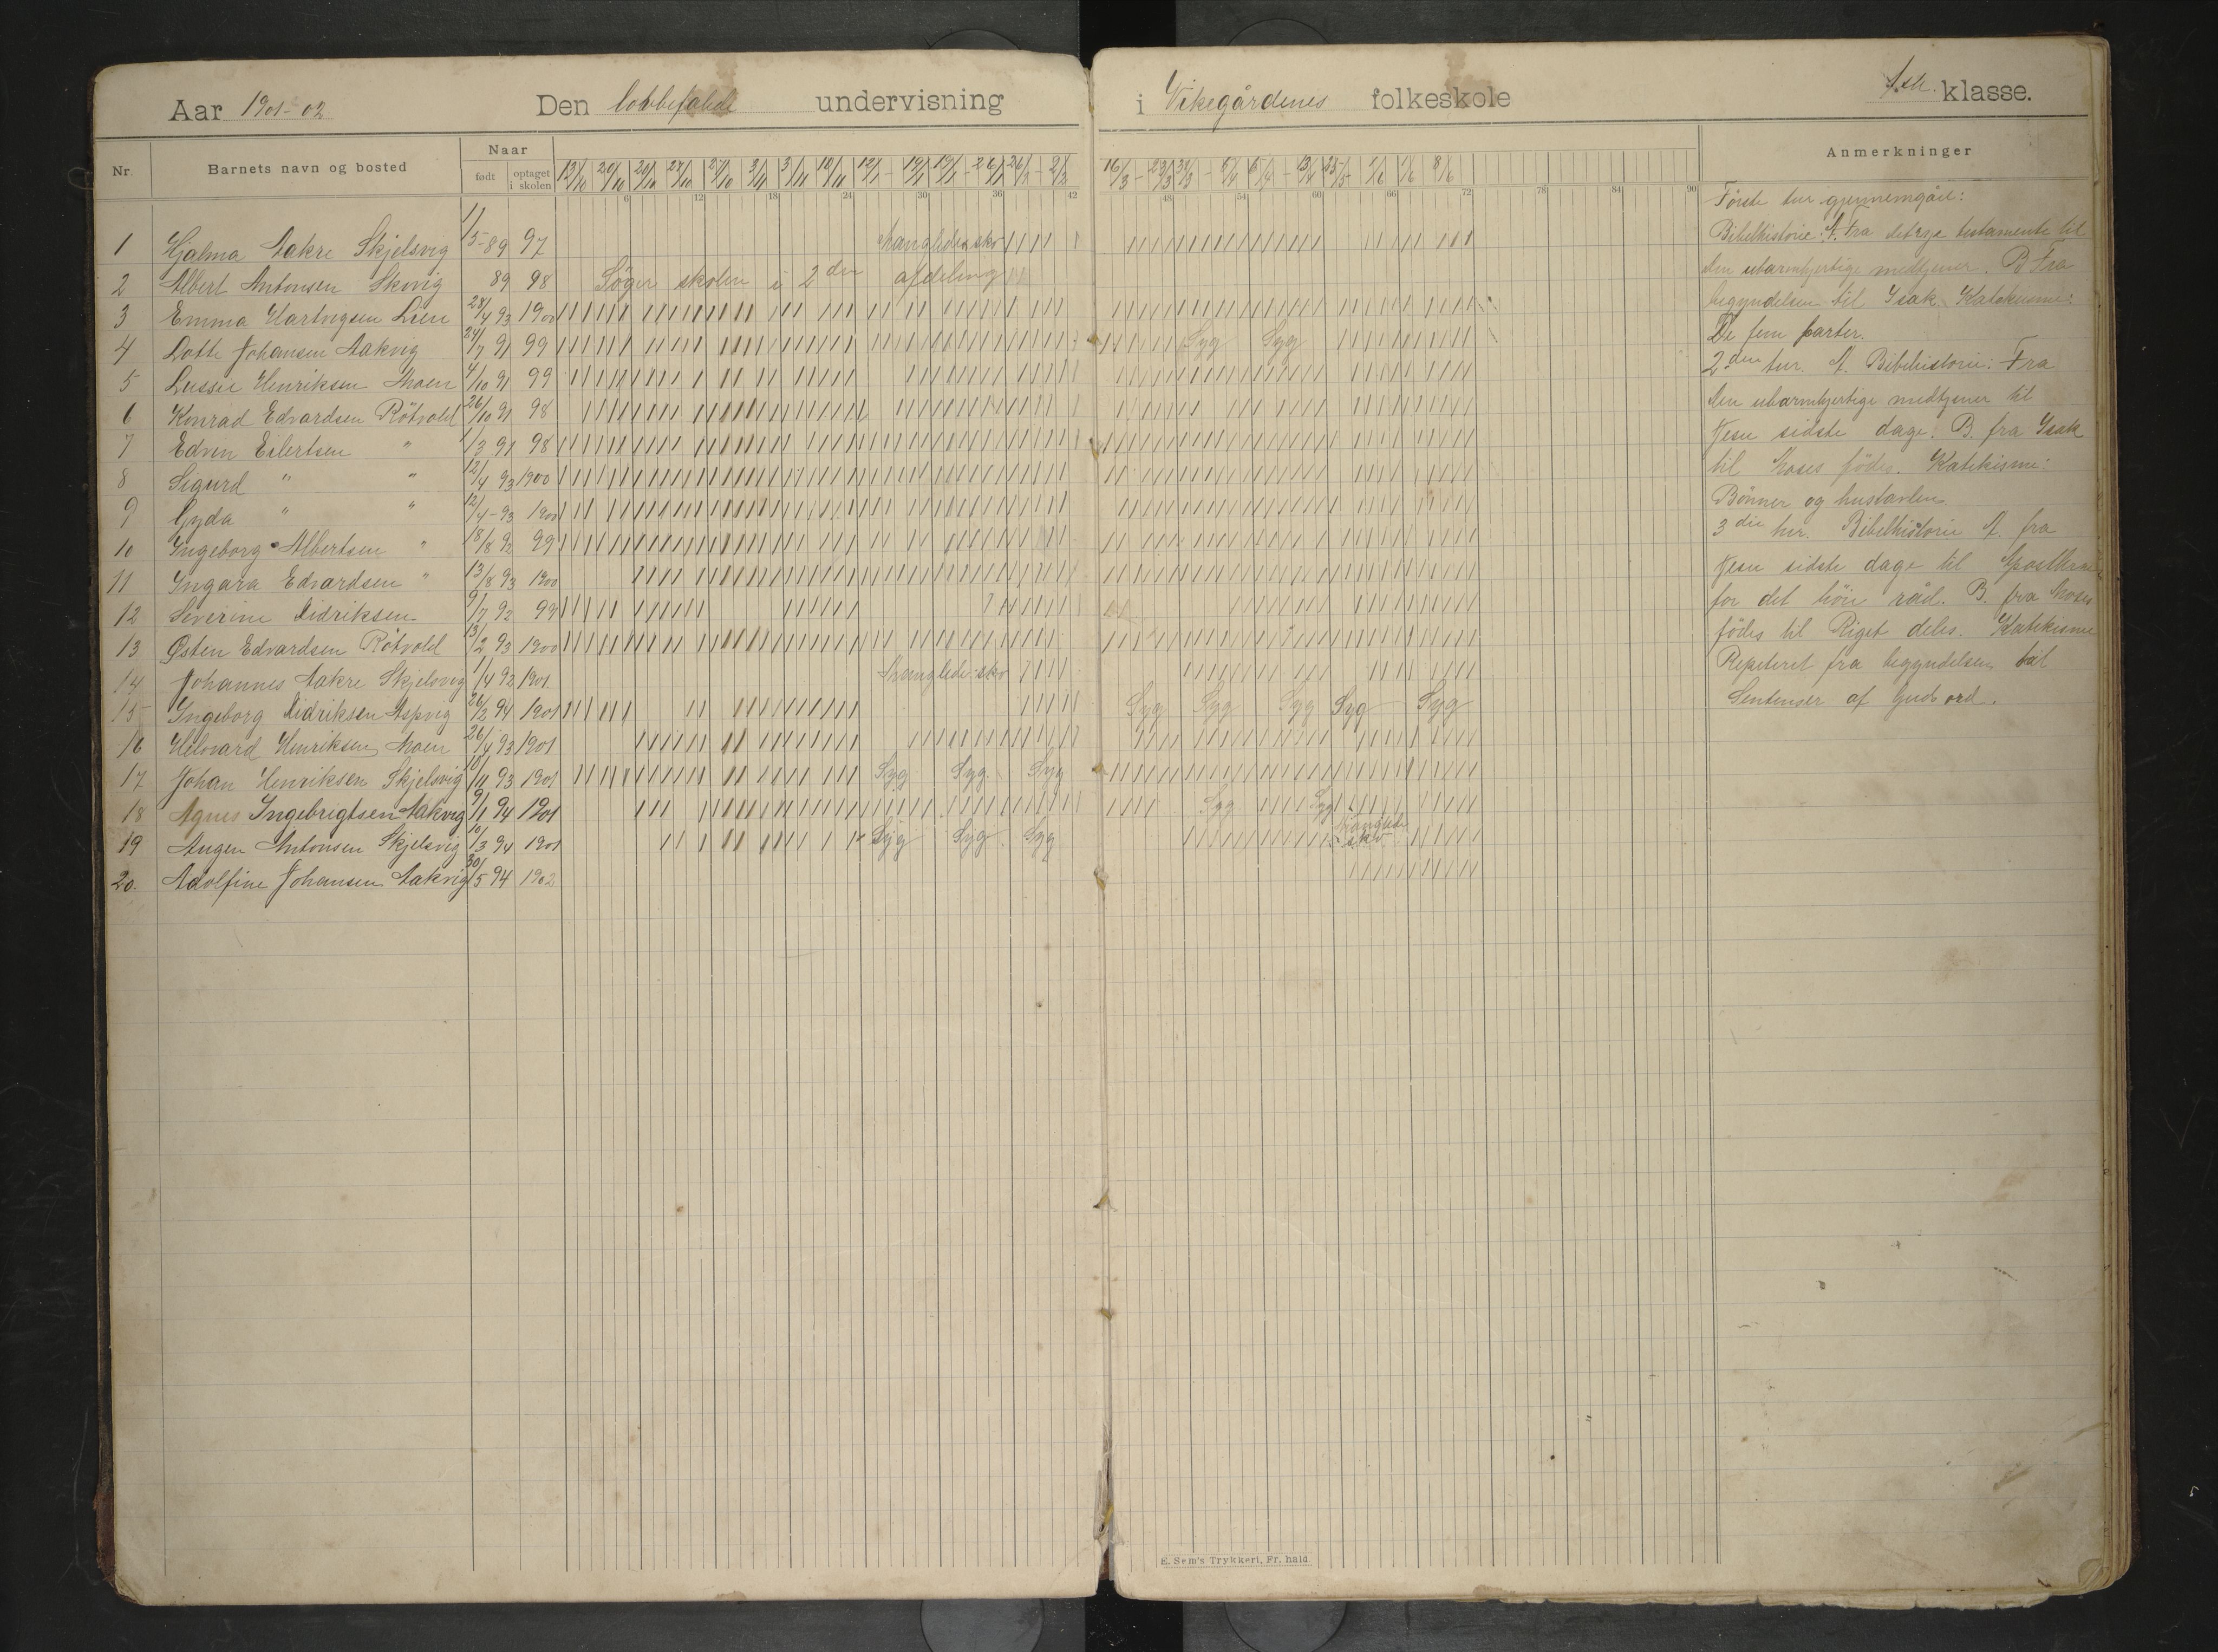 Aar 1901-02 Den lovbefalede undervisning i Vikegårdenes folkeskole 1ste klasse.
Nr. Barnets navn og bosted Naar født optaget i skolen Anmerkninger
6 12 18 24 30 36 42 48 54 60 66 72 78 84 90
1 Hjalma Aakre Skjelsvig 1/5-89 97 Manglede sko
2 Albert Antonsen Skovig 89 98 Søger skolen i 2den afdeling
3 Emma Hartvigsen Lien 28/4 93 1900
4 Lotte Johansen Aakvig 24/7 91 99 Syg Syg
5 Lussie Henriksen Moen 4/10 91 99
6 Konrad Edvardsen Rötvold 26/10 91 98
7 Edvin Eilertsen " 1/3 91 98
8 Sigurd " " 12/4 93 1900
9 Gyda " " 12/4-93 1900
10 Ingeborg Albertsen " 18/8 92 99
11 Ingara Edvardsen " 13/8 93 1900
12 Severine Didriksen 9/7 92 99
13 Østen Edvardsen Rötvold 13/2 93 1900
14 Johannes Aakre Skjelsvig 1/4 92 1901. Manglede sko
15 Ingeborg Didriksen Aspvig 26/2 94 1901 Syg Syg Syg Syg Syg
16 Helvard Henriksen Moen 26/4 93 1901
17 Johan Henriksen Skjelsvig 93 1901 Syg Syg Syg
18 Agnes Ingebrigtsen Aakvig 9/1 94 1901 Syg Syg
19 Augen Antonsen Skjelsvig 10/3 94 1901 Syg Syg Syg Manglede sko
20. Adolfine Johansen Aakvig 30/5 94 1902
Förste tur gjennemgået:
Bibelhistorie: A. Fra det nye testamente til
den ubarmhjertige medtjener. B Fra
begyndelsen til Isak. Katekisme:
De fem parter.
2den tur. A. Bibelhistorie: Fra
den ubarmhjertige medtjener til
Jesu sidste dage. B. fra Isak
til Moses födes. Katekisme:
Bönner og hustavlen.
3die tur. Bibelhistorie A. fra
Jesu sidste dage til Apostlerne
for det höie råd. B. fra Moses
födes til Riget deles. Katekisme
Repeteret fra begyndelsen til
Sentenser af Guds ord.
E. Sem's Trykkeri, Fr.hald.